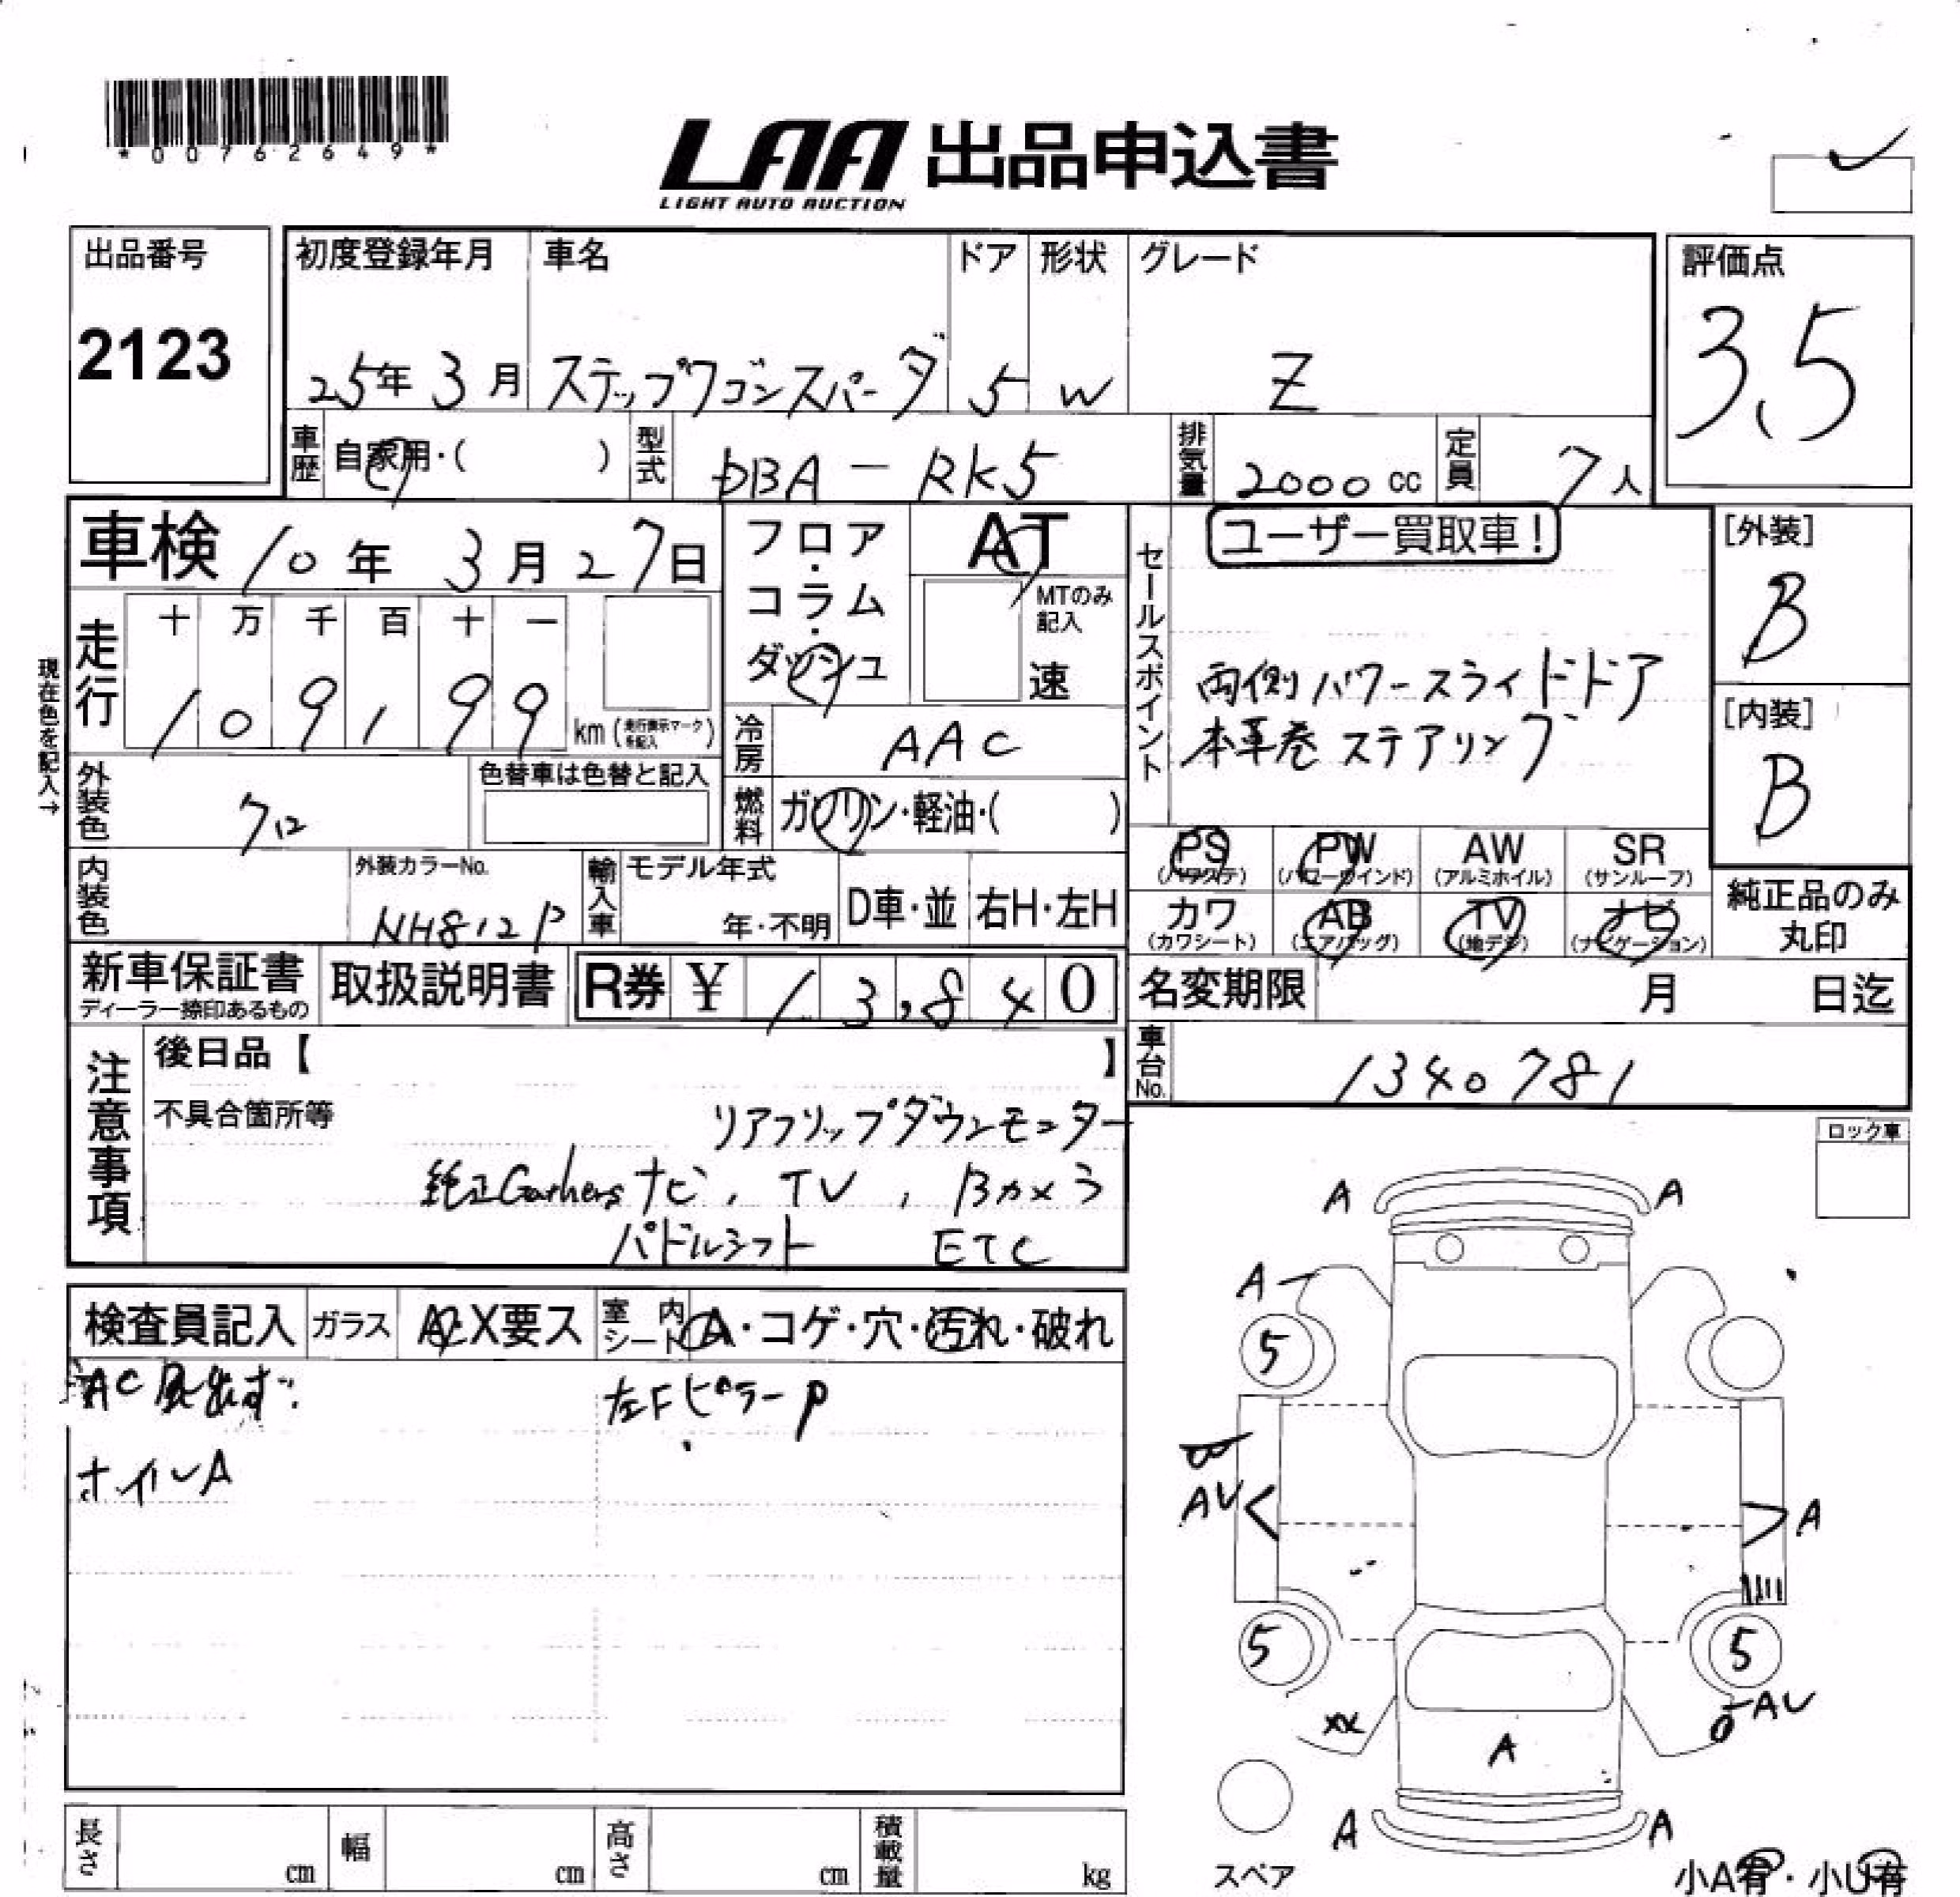 *00762649*
LAA 出品申込書
LIGHT AUTO AUCTION
出品番号
2123
初度登録年月 車名 ドア 形状 グレード
25年 3月 ステップワゴンスパーダ 5 W Z
評価点
3.5
車歴 自家用・( ) 型式 DBA-RK5 排気量 2000cc 定員 7人
車検 10年 3月 27日
フロア・コラム・ダッシュ
AT
MTのみ記入
速
走行
十 万 千 百 十 一
1 0 9 1 9 9 km (走行表示マークを記入)
現在色を記入→
冷房 AAC
外装色 クロ
色替車は色替と記入
燃料 ガソリン・軽油・( )
セールスポイント
ユーザー買取車!
両側パワースライドドア
本革巻ステアリング
[外装]
B
[内装]
B
PS (パワステ) PW (パワーウインド) AW (アルミホイル) SR (サンルーフ)
カワ (カワシート) AB (エアバッグ) TV (地デジ) ナビ (ナビゲーション)
純正品のみ丸印
内装色
外装カラーNo.
NH812P
輸入車 モデル年式 年・不明 D車・並 右H・左H
新車保証書
ディーラー捺印あるもの
取扱説明書
R券 ¥ 13,840
名変期限 月 日迄
車台No. 1340781
注意事項
後日品【 】
不具合箇所等
リアフリップダウンモニター
純正Gathersナビ, TV, Bカメラ
パドルシフト ETC
ロック車
検査員記入 ガラス A・X要ス 室内シート A・コゲ・穴・汚れ・破れ
左FピラーP
ホイルA
A A
A
5
AV A
5 5
AV
XX
A
A A
スペア
小A有・小U有
長さ cm 幅 cm 高さ cm 積載量 kg